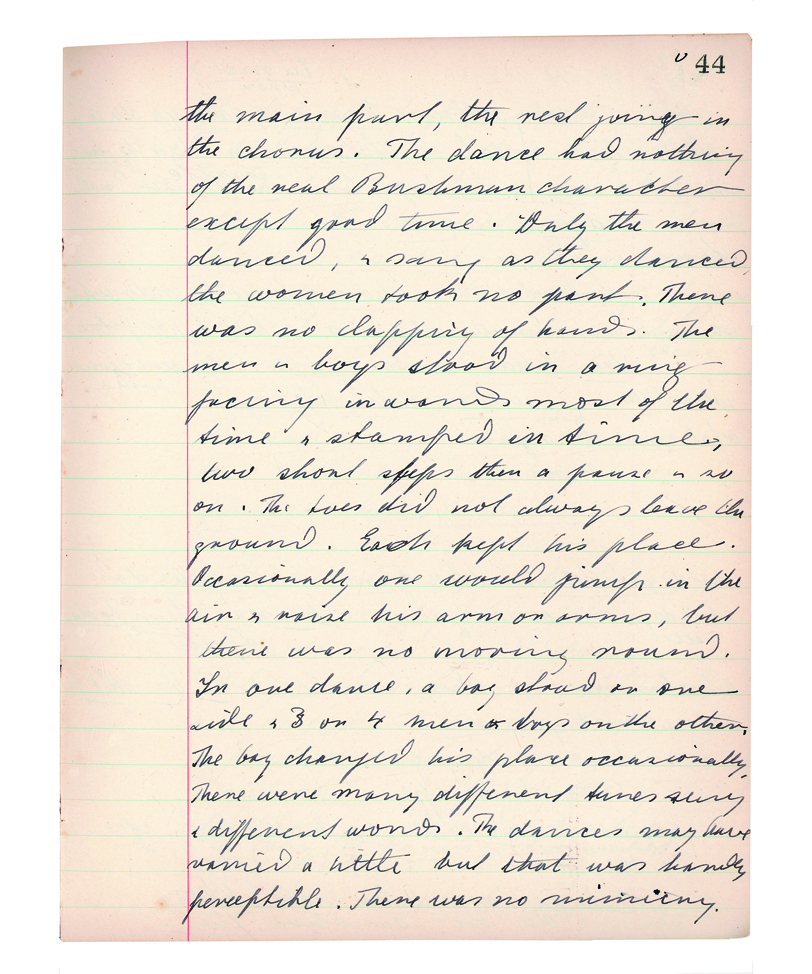 44
the main part, the rest joing in
the chorus. The dance had nothing
of the real Bushman character
except good time. Only the men
danced, & sang as they danced,
the women took no part. There
was no clapping of hands. The
men & boys stood in a ring
facing inwards most of the
time & stamped in time,
two short steps then a pause & so
on. The toes did not always leave the
ground. Each kept his place.
Occasionally one would jump in the
air & raise his arm or arms, but
there was no moving round.
In one dance, a boy stood on one
side & 3 or 4 men or boys on the other.
The boy changed his place occasionally.
There were many different tunes sung
& different words. The dances may have
varied a little but that was hardly
perceptible. There was no mimicry.